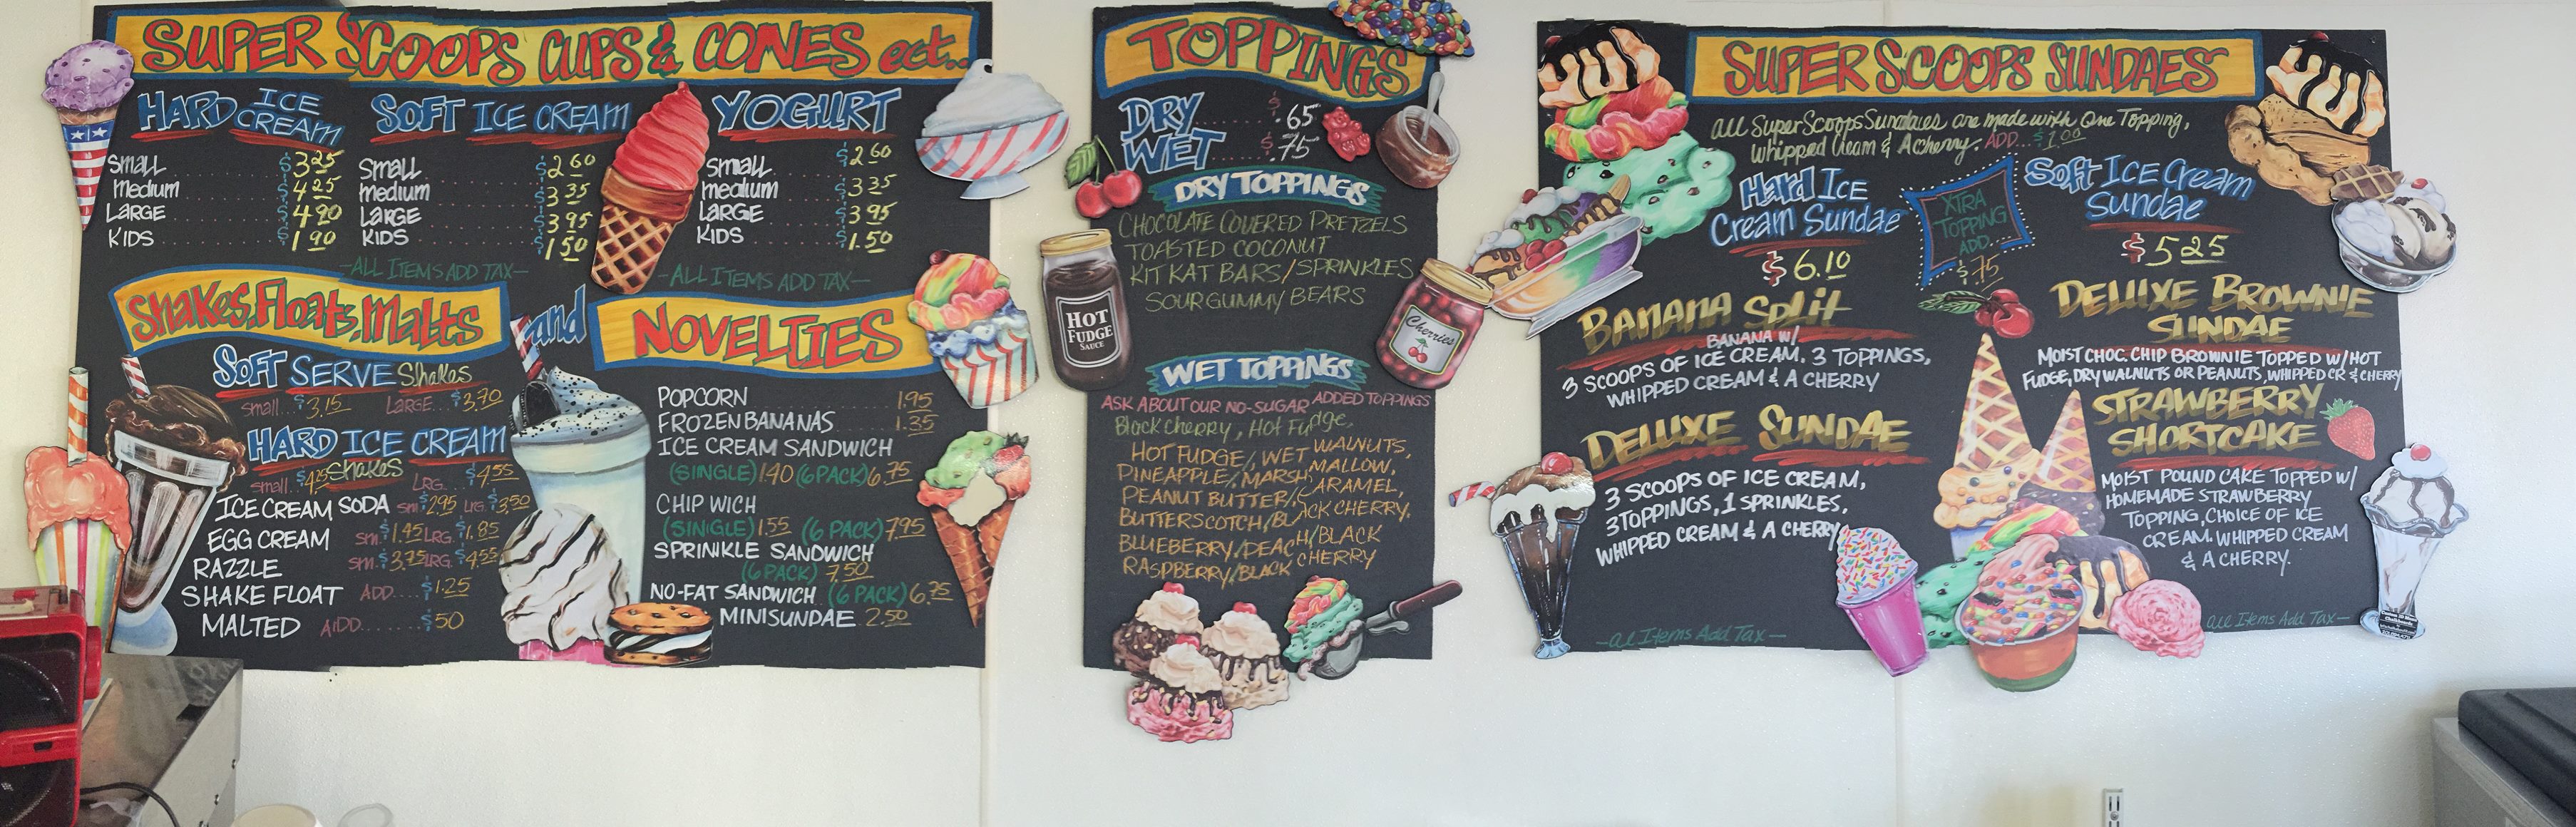 SUPER SCOOPS CUPS & CONES ect..
HARD ICE CREAM
SMALL $3.25
medium $4.25
LARGE $4.90
KIDS $1.90
SOFT ICE CREAM
SMALL $2.60
medium $3.35
LARGE $3.95
KIDS $1.50
-ALL ITEMS ADD TAX-
YOGURT
SMALL $2.60
medium $3.35
LARGE $3.95
KIDS $1.50
-ALL ITEMS ADD TAX-
Shakes, Floats, Malts
and
NOVELTIES
SOFT SERVE Shakes
small...$3.15 LARGE...$3.70
HARD ICE CREAM
Shakes
small..$4.25 LRG. $4.55
ICE CREAM SODA sm $2.95 LRG. $3.50
EGG CREAM sm. $1.45 LRG. $1.85
RAZZLE sm. $3.75 LRG. $4.55
SHAKE FLOAT ADD....$1.25
MALTED ADD.......$50
POPCORN 1.95
FROZEN BANANAS 1.35
ICE CREAM SANDWICH
(SINGLE) 1.40 (6 PACK) 6.75
CHIP WICH
(SINGLE) 1.55 (6 PACK) 7.95
SPRINKLE SANDWICH
(6 PACK) 7.50
NO-FAT SANDWICH (6 PACK) 6.75
MINI SUNDAE 2.50
TOPPINGS
DRY $.65
WET $.75
DRY TOPPINGS
CHOCOLATE COVERED PRETZELS
TOASTED COCONUT
KIT KAT BARS/SPRINKLES
SOUR GUMMY BEARS
HOT
FUDGE
SAUCE
Cherries
WET TOPPINGS
ASK ABOUT OUR NO-SUGAR ADDED TOPPINGS
Black cherry, Hot Fudge,
HOT FUDGE/, WET WALNUTS,
PINEAPPLE/, MARSHMALLOW,
PEANUT BUTTER/CARAMEL,
BUTTERSCOTCH/BLACK CHERRY,
BLUEBERRY/PEACH/BLACK
RASPBERRY/BLACK CHERRY
SUPER SCOOPS SUNDAES
all Super Scoops Sundaes are made with One Topping,
whipped Cream & A cherry. ADD...$1.00
Hard Ice
Cream Sundae
$6.10
XTRA
TOPPING
ADD
$.75
Soft Ice Cream
Sundae
$5.25
BANANA Split
BANANA W/
3 SCOOPS OF ICE CREAM, 3 TOPPINGS,
WHIPPED CREAM & A CHERRY
DELUXE BROWNIE
SUNDAE
MOIST CHOC. CHIP BROWNIE TOPPED W/HOT
FUDGE, DRY WALNUTS OR PEANUTS, WHIPPED CR & CHERRY
DELUXE SUNDAE
3 SCOOPS OF ICE CREAM,
3 TOPPINGS, 1 SPRINKLES,
WHIPPED CREAM & A CHERRY
STRAWBERRY
SHORTCAKE
MOIST POUND CAKE TOPPED W/
HOMEMADE STRAWBERRY
TOPPING, CHOICE OF ICE
CREAM. WHIPPED CREAM
& A CHERRY.
-all Items Add Tax-
all Items Add Tax-